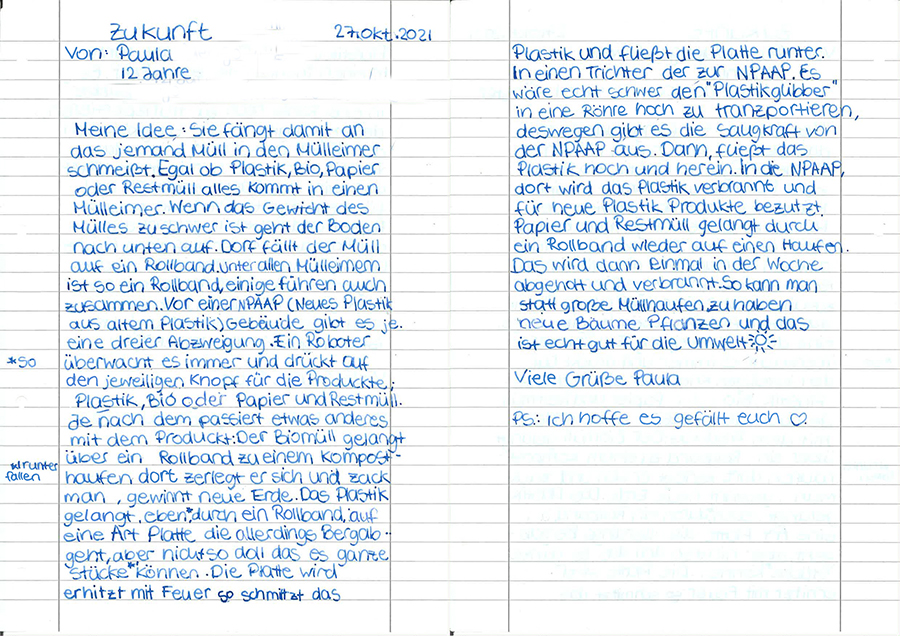 Zukunft 27.Okt.2021
Von: Paula
12 Jahre
Meine Idee: Sie fängt damit an
das jemand Müll in den Mülleimer
schmeißt. Egal ob Plastik, Bio, Papier
oder Restmüll alles kommt in einen
Mülleimer. Wenn das Gewicht des
Mülles zu schwer ist geht der Boden
nach unten auf. Dort fällt der Müll
auf ein Rollband. Unter allen Mülleimern
ist so ein Rollband, einige führen auch
zusammen. Vor einer NPAAP (Neues Plastik
aus altem Plastik) Gebäude gibt es je
eine dreier Abzweigung. Ein Roboter
*so
überwacht es immer und drückt auf
den jeweiligen Knopf für die Produckte;
Plastik, Bio oder Papier und Restmüll.
Je nach dem passiert etwas anderes
mit dem Produckt: Der Biomüll gelangt
über ein Rollband zu einem Kompost-
*runter
fallen
haufen dort zerlegt er sich und zack
man, gewinnt neue Erde. Das Plastik
gelangt, eben* durch ein Rollband, auf
eine Art Platte die allerdings Bergab
geht, aber nicht so doll das es ganze
stücke* können. Die Platte wird
erhitzt mit Feuer so schmitzt das
Plastik und fließt die Platte runter.
In einen Trichter der zur NPAAP. Es
wäre echt schwer den "Plastikglibber"
in eine Röhre hoch zu tranzportieren,
deswegen gibt es die Saugkraft von
der NPAAP aus. Dann, fließt das
Plastik hoch und herein. In die NPAAP,
dort wird das Plastik verbrannt und
für neue Plastik Produkte bezutzt.
Papier und Restmüll gelangt durch
ein Rollband wieder auf einen Haufen.
Das wird dann Einmal in der Woche
abgeholt und verbrannt. So kann man
statt große Müllhaufen zu haben
neue Bäume Pflanzen und das
ist echt gut für die Umwelt
Viele Grüße Paula
PS.: Ich hoffe es gefällt euch ♡.